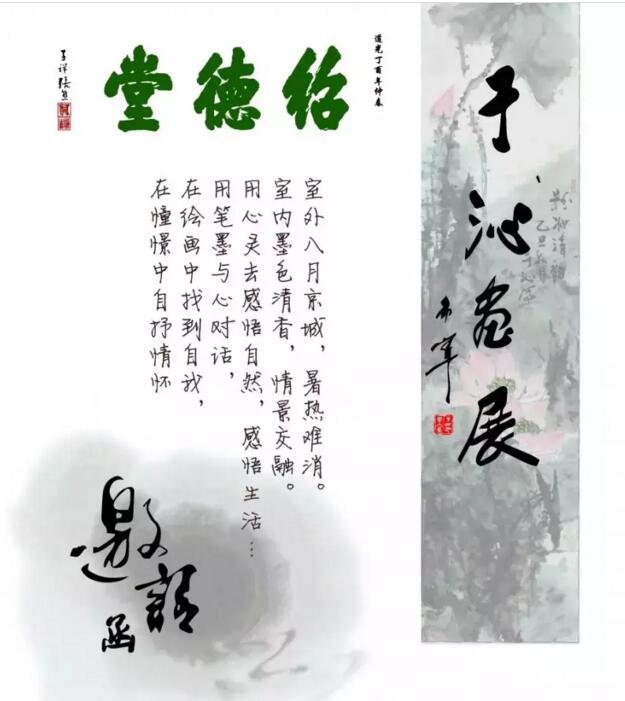 道光丁酉年仲春
绍德堂
子祥张熊
室外八月京城，暑热难消。
室内墨色清香，情景交融。
用心灵去感悟自然，感悟生活…
用笔墨与心对话，
在绘画中找到自我，
在憧憬中自抒情怀
邀請函
于沁画展